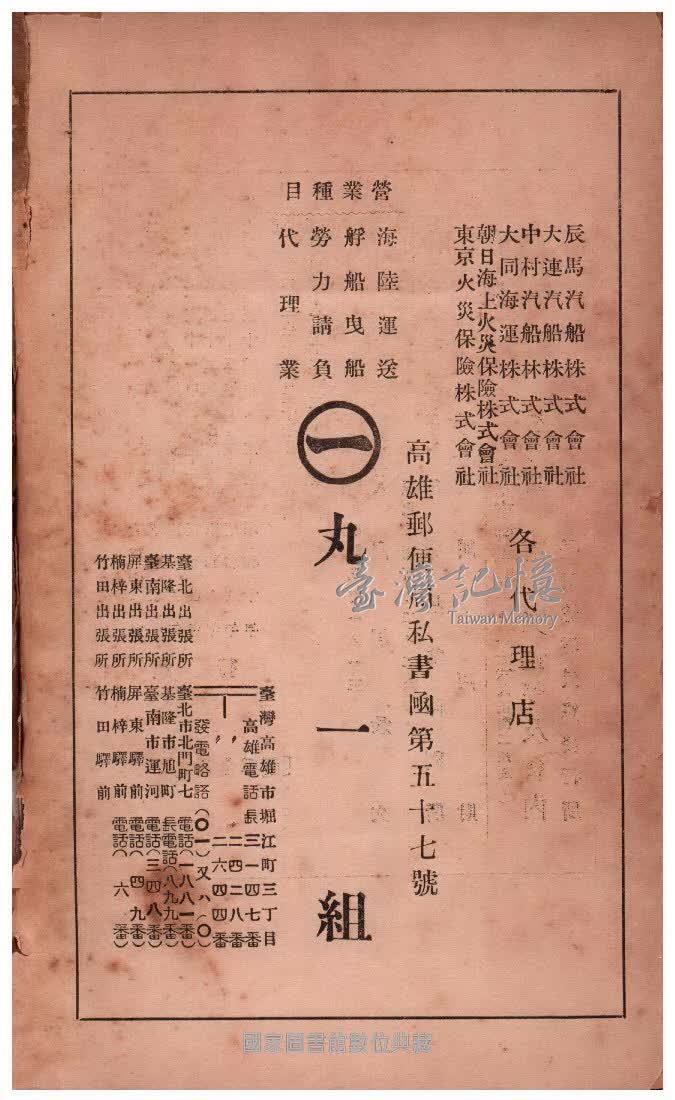 辰馬汽船株式會社
大連汽船株式會社
中村汽船林式會社
大同海運株式會社
朝日海上火災保險株式會社
東京火災保險株式會社
各代理店
營業種目
海陸運送
艀船曳船
勞力請負
代理業
高雄郵便局私書凾第五十七號
㊀丸一組
臺灣高雄市堀江町三丁目
高雄電話長三一四七番
〃 〃 二四二八番
二六四四番
發電略語(〇一)又ハ(〇)
臺北出張所 臺北市北門町七 電話(一八八一番)
基隆出張所 基隆市旭町 長電話(八九九番)
臺南出張所 臺南市運河 電話(三四八番)
屏東出張所 屏東驛前 電話(四九番)
楠梓出張所 楠梓驛前 電話(六番)
竹田出張所 竹田驛前
臺灣記憶
Taiwan Memory
國家圖書館數位典藏